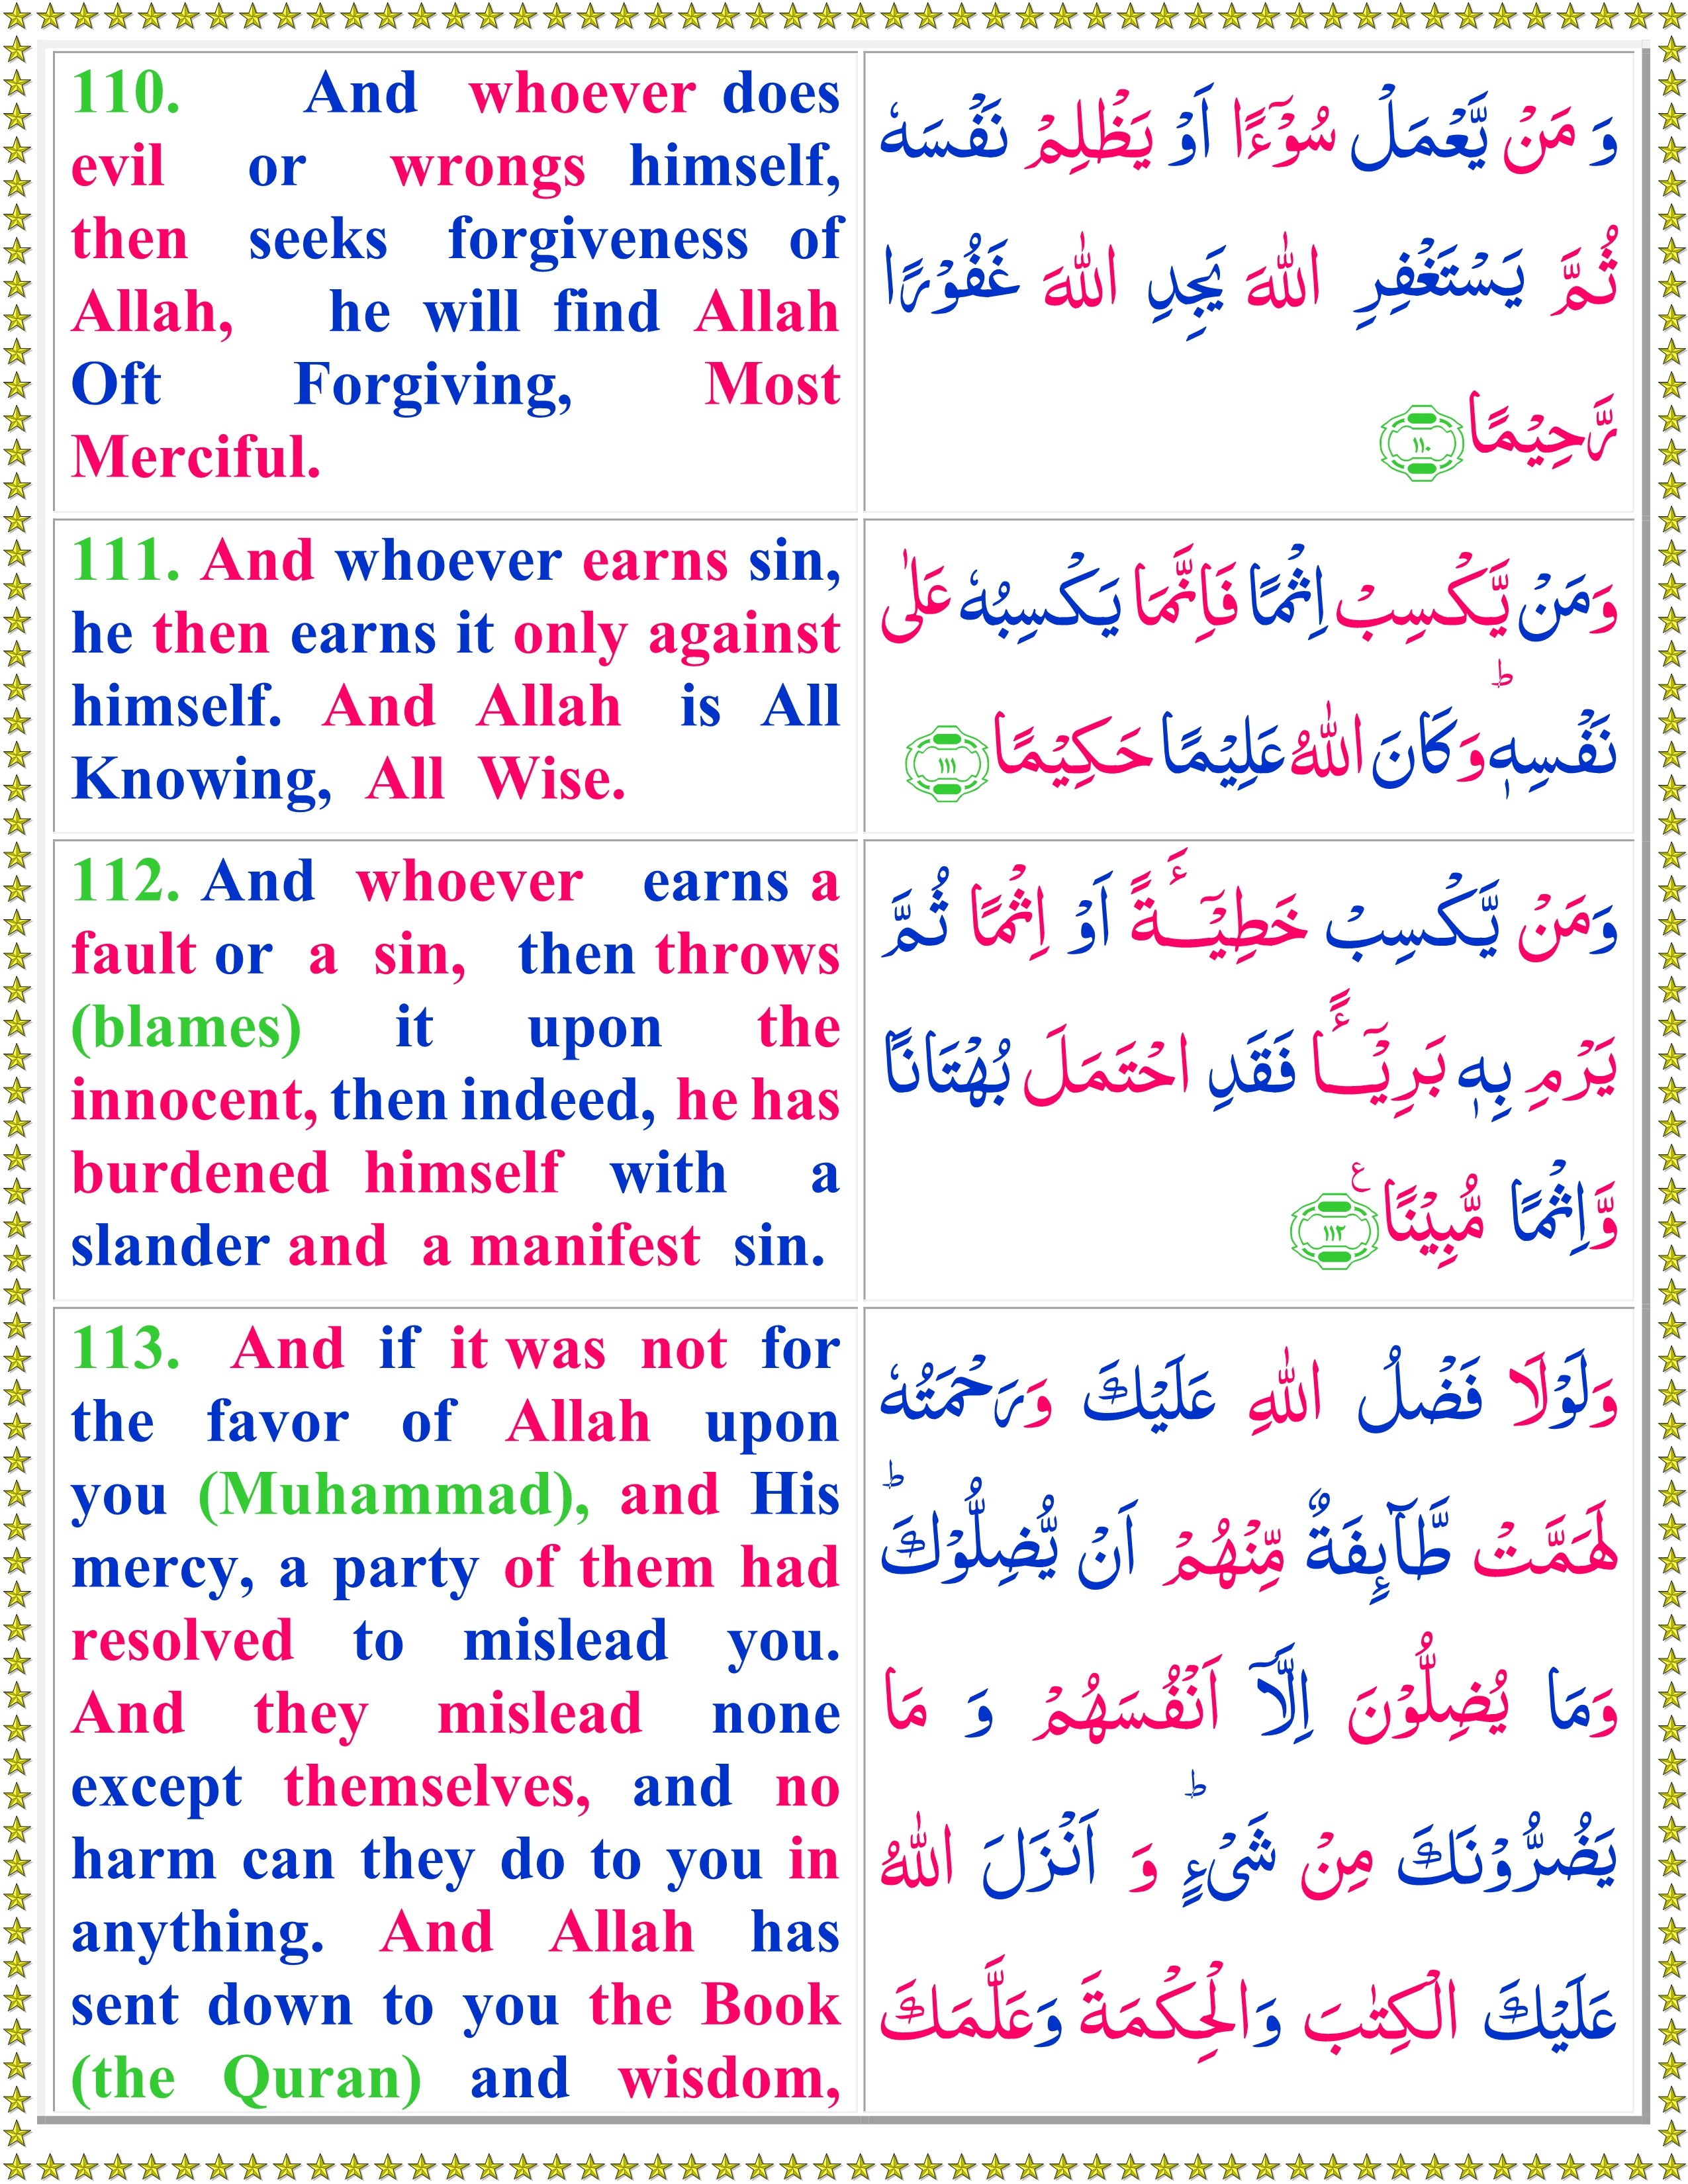 110. And whoever does
evil or wrongs himself,
then seeks forgiveness of
Allah, he will find Allah
Oft Forgiving, Most
Merciful.
وَ مَنْ يَّعْمَلْ سُوْٓءًا اَوْ يَظْلِمْ نَفْسَهٗ
ثُمَّ يَسْتَغْفِرِ اللّٰهَ يَجِدِ اللّٰهَ غَفُوْرًا
رَّحِيْمًا ۝۱۱۰
111. And whoever earns sin,
he then earns it only against
himself. And Allah is All
Knowing, All Wise.
وَمَنْ يَّكْسِبْ اِثْمًا فَاِنَّمَا يَكْسِبُهٗ عَلٰى
نَفْسِهٖ ؕ وَكَانَ اللّٰهُ عَلِيْمًا حَكِيْمًا ۝۱۱۱
112. And whoever earns a
fault or a sin, then throws
(blames) it upon the
innocent, then indeed, he has
burdened himself with a
slander and a manifest sin.
وَمَنْ يَّكْسِبْ خَطِيْٓـــَٔةً اَوْ اِثْمًا ثُمَّ
يَرْمِ بِهٖ بَرِيْٓـــًٔا فَقَدِ احْتَمَلَ بُهْتَانًا
وَّاِثْمًا مُّبِيْنًا ۝۱۱۲ ع
113. And if it was not for
the favor of Allah upon
you (Muhammad), and His
mercy, a party of them had
resolved to mislead you.
And they mislead none
except themselves, and no
harm can they do to you in
anything. And Allah has
sent down to you the Book
(the Quran) and wisdom,
وَلَوْلَا فَضْلُ اللّٰهِ عَلَيْكَ وَرَحْمَتُهٗ
لَهَمَّتْ طَّآىِٕفَةٌ مِّنْهُمْ اَنْ يُّضِلُّوْكَ ؕ
وَمَا يُضِلُّوْنَ اِلَّاۤ اَنْفُسَهُمْ وَ مَا
يَضُرُّوْنَكَ مِنْ شَىْءٍ ؕ وَ اَنْزَلَ اللّٰهُ
عَلَيْكَ الْكِتٰبَ وَالْحِكْمَةَ وَعَلَّمَكَ